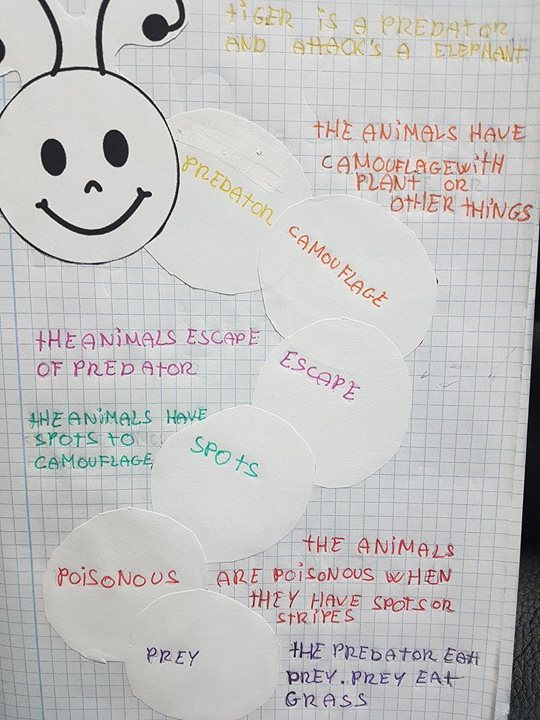 tiGER iS A PREDAtOR
AND AttACK'S A ELEPHANt
PREDAtOR
tHE ANiMALS HAVE
CAMOUFLAGEWitH
PLANt OR
OtHER tHINGS
CAMOUFLAGE
tHEANiMALS ESCAPE
OF PREDAtOR
ESCAPE
tHEANiMALS HAVE
SPOtS tO
CAMOUFLAGE
SPOtS
POiSONOUS
tHE ANiMALS
ARE POiSONOUS WHEN
tHEY HAVE SPOtSOR
StRiPES
PREY
tHE PREDAtOR EAt
PREY. PREY EAt
GRASS